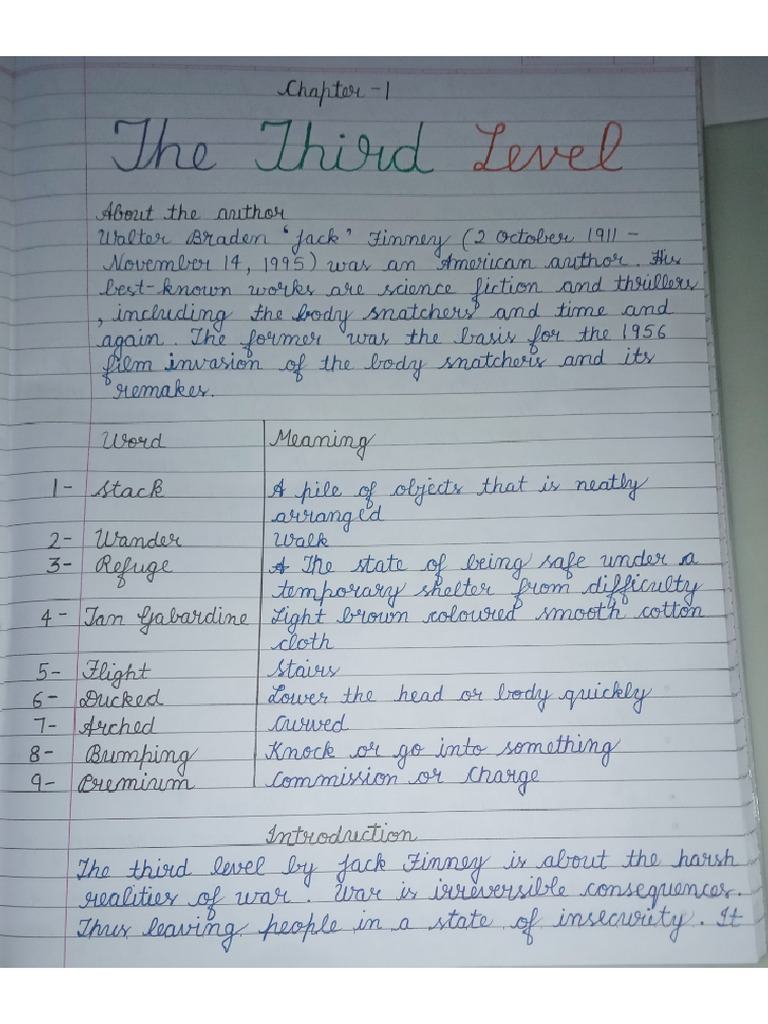 Chapter-1
The Third Level
About the author
Walter Braden "Jack" Finney (2 October 1911 -
November 14, 1995) was an American author. His
best-known works are science fiction and thrillers
, including the body snatchers and time and
again. The former was the basis for the 1956
film invasion of the body snatchers and its
remakes.
Word Meaning
1- Stack A pile of objects that is neatly
arranged
2- Wander Walk
3- Refuge The state of being safe under a
temporary shelter from difficulty
4- Tan Gabardine Light brown coloured smooth cotton
cloth
5- Flight Stairs
6- Ducked Lower the head or body quickly
7- Arched Curved
8- Bumping Knock or go into something
9- Premium Commission or Charge
Introduction
The third level by Jack Finney is about the harsh
realities of war. War is irreversible consequences.
Thus leaving people in a state of insecurity. It